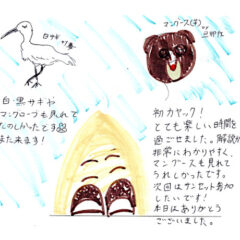 白サギ
マングース(子)
白・黒サギや
マングローブも見れて
たのしかったです
また来ます!
初カヤック!
とても楽しい時間を
過ごせました。解説が
非常にわかりやすく、
マングースも見れて
うれしかったです。
次回はサンセット参加
したいです!
本日はありがとう
ございました。